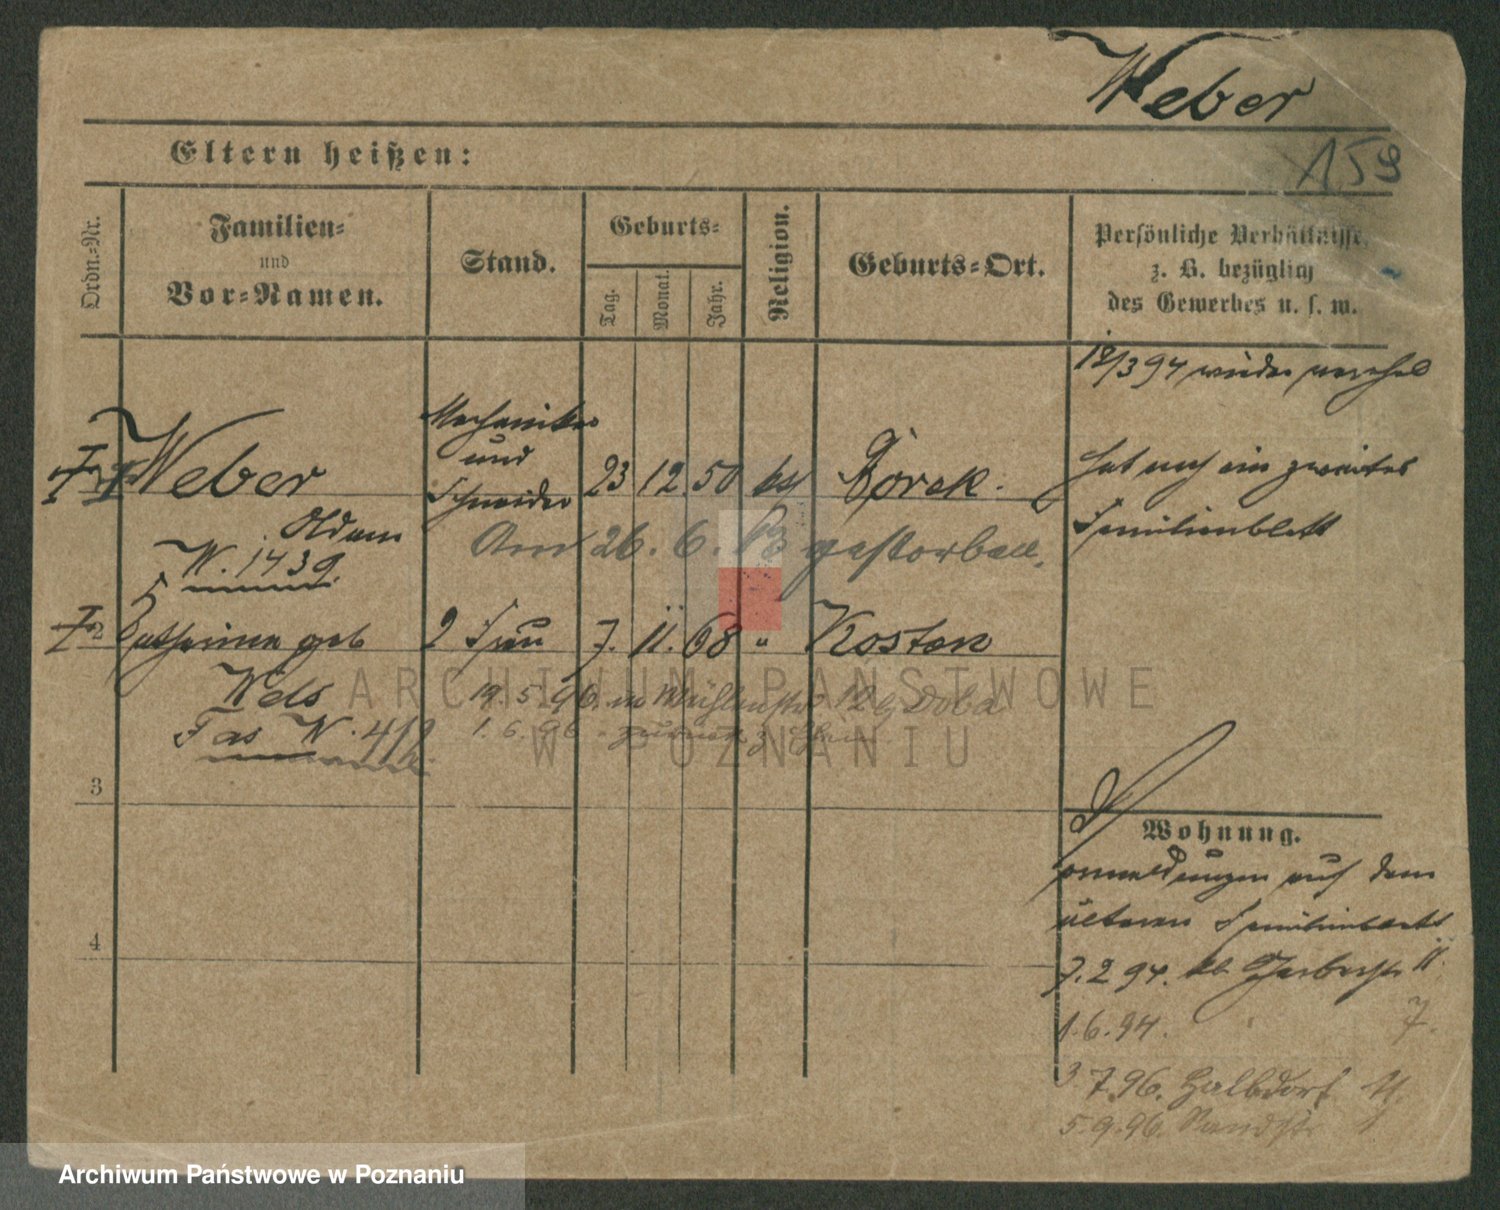 Weber
159
Eltern heißen:
Ordn.-Nr.
Familien-
und
Vor-Namen.
Stand.
Geburts-
Tag.
Monat.
Jahr.
Religion.
Geburts-Ort.
Persönliche Verhältnisse,
z. B. bezüglich
des Gewerbes u. s. w.
18/3 94 wieder
Weber
Mechaniker
und
Schneider
23 12 50
Borek.
hat noch ein zweites
Familienblatt
N. 1439
Am 26. 6. 13 gestorben.
2
Katharina geb
Wels
Fas N. 412
2 Frau
7. 11. 68 "
Kosten
19. 5. 96. Mühlenstr 12
1. 6. 96 zurück
3
4
Wohnung.
anmeldungen auf dem
älteren Familienblatt
7. 2 94. Gerberstr 11.
1. 6. 94. 7.
3. 7 96. Halbdorf
5. 9. 96. Sandstr
ARCHIWUM PAŃSTWOWE
W POZNANIU
Archiwum Państwowe w Poznaniu